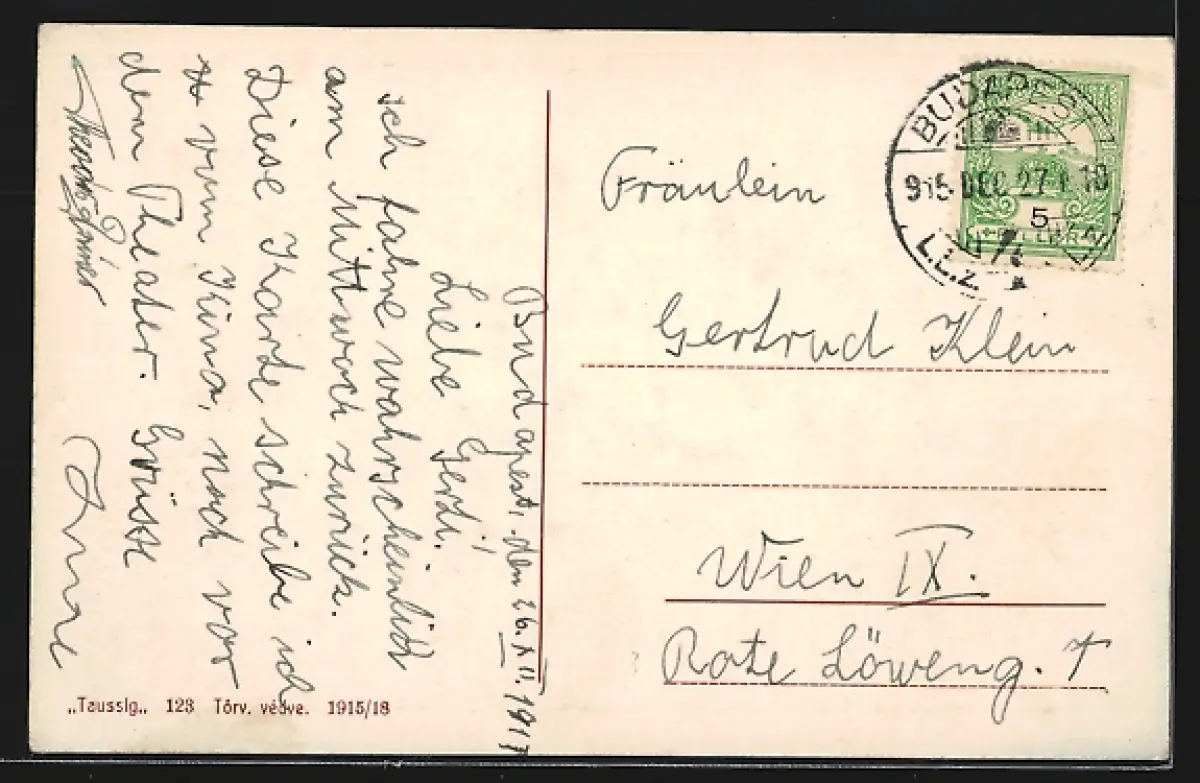 Budapest, den 26. XII. 191
Liebe Gerdi!
ich fahre wahrscheinlich
am Mittwoch zurück.
Diese Karte schreibe ich
vom Kino, nach vor
dem Theater. Grüsse
Fräulein
Gertrud Klein
Wien IX.
Rote Löweng. 7
BUDAPEST
915 DEC 27
5
FILLÉR
„Taussig„ 123 Törv. védve. 1915/18